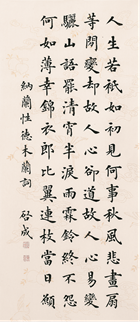 人生若衹如初見何事秋風悲畫扇
等閒變却故人心卻道故人心易變
驪山語罷清宵半淚雨霖鈴終不怨
何如薄幸錦衣郎比翼連枝當日願
納蘭性德木蘭詞